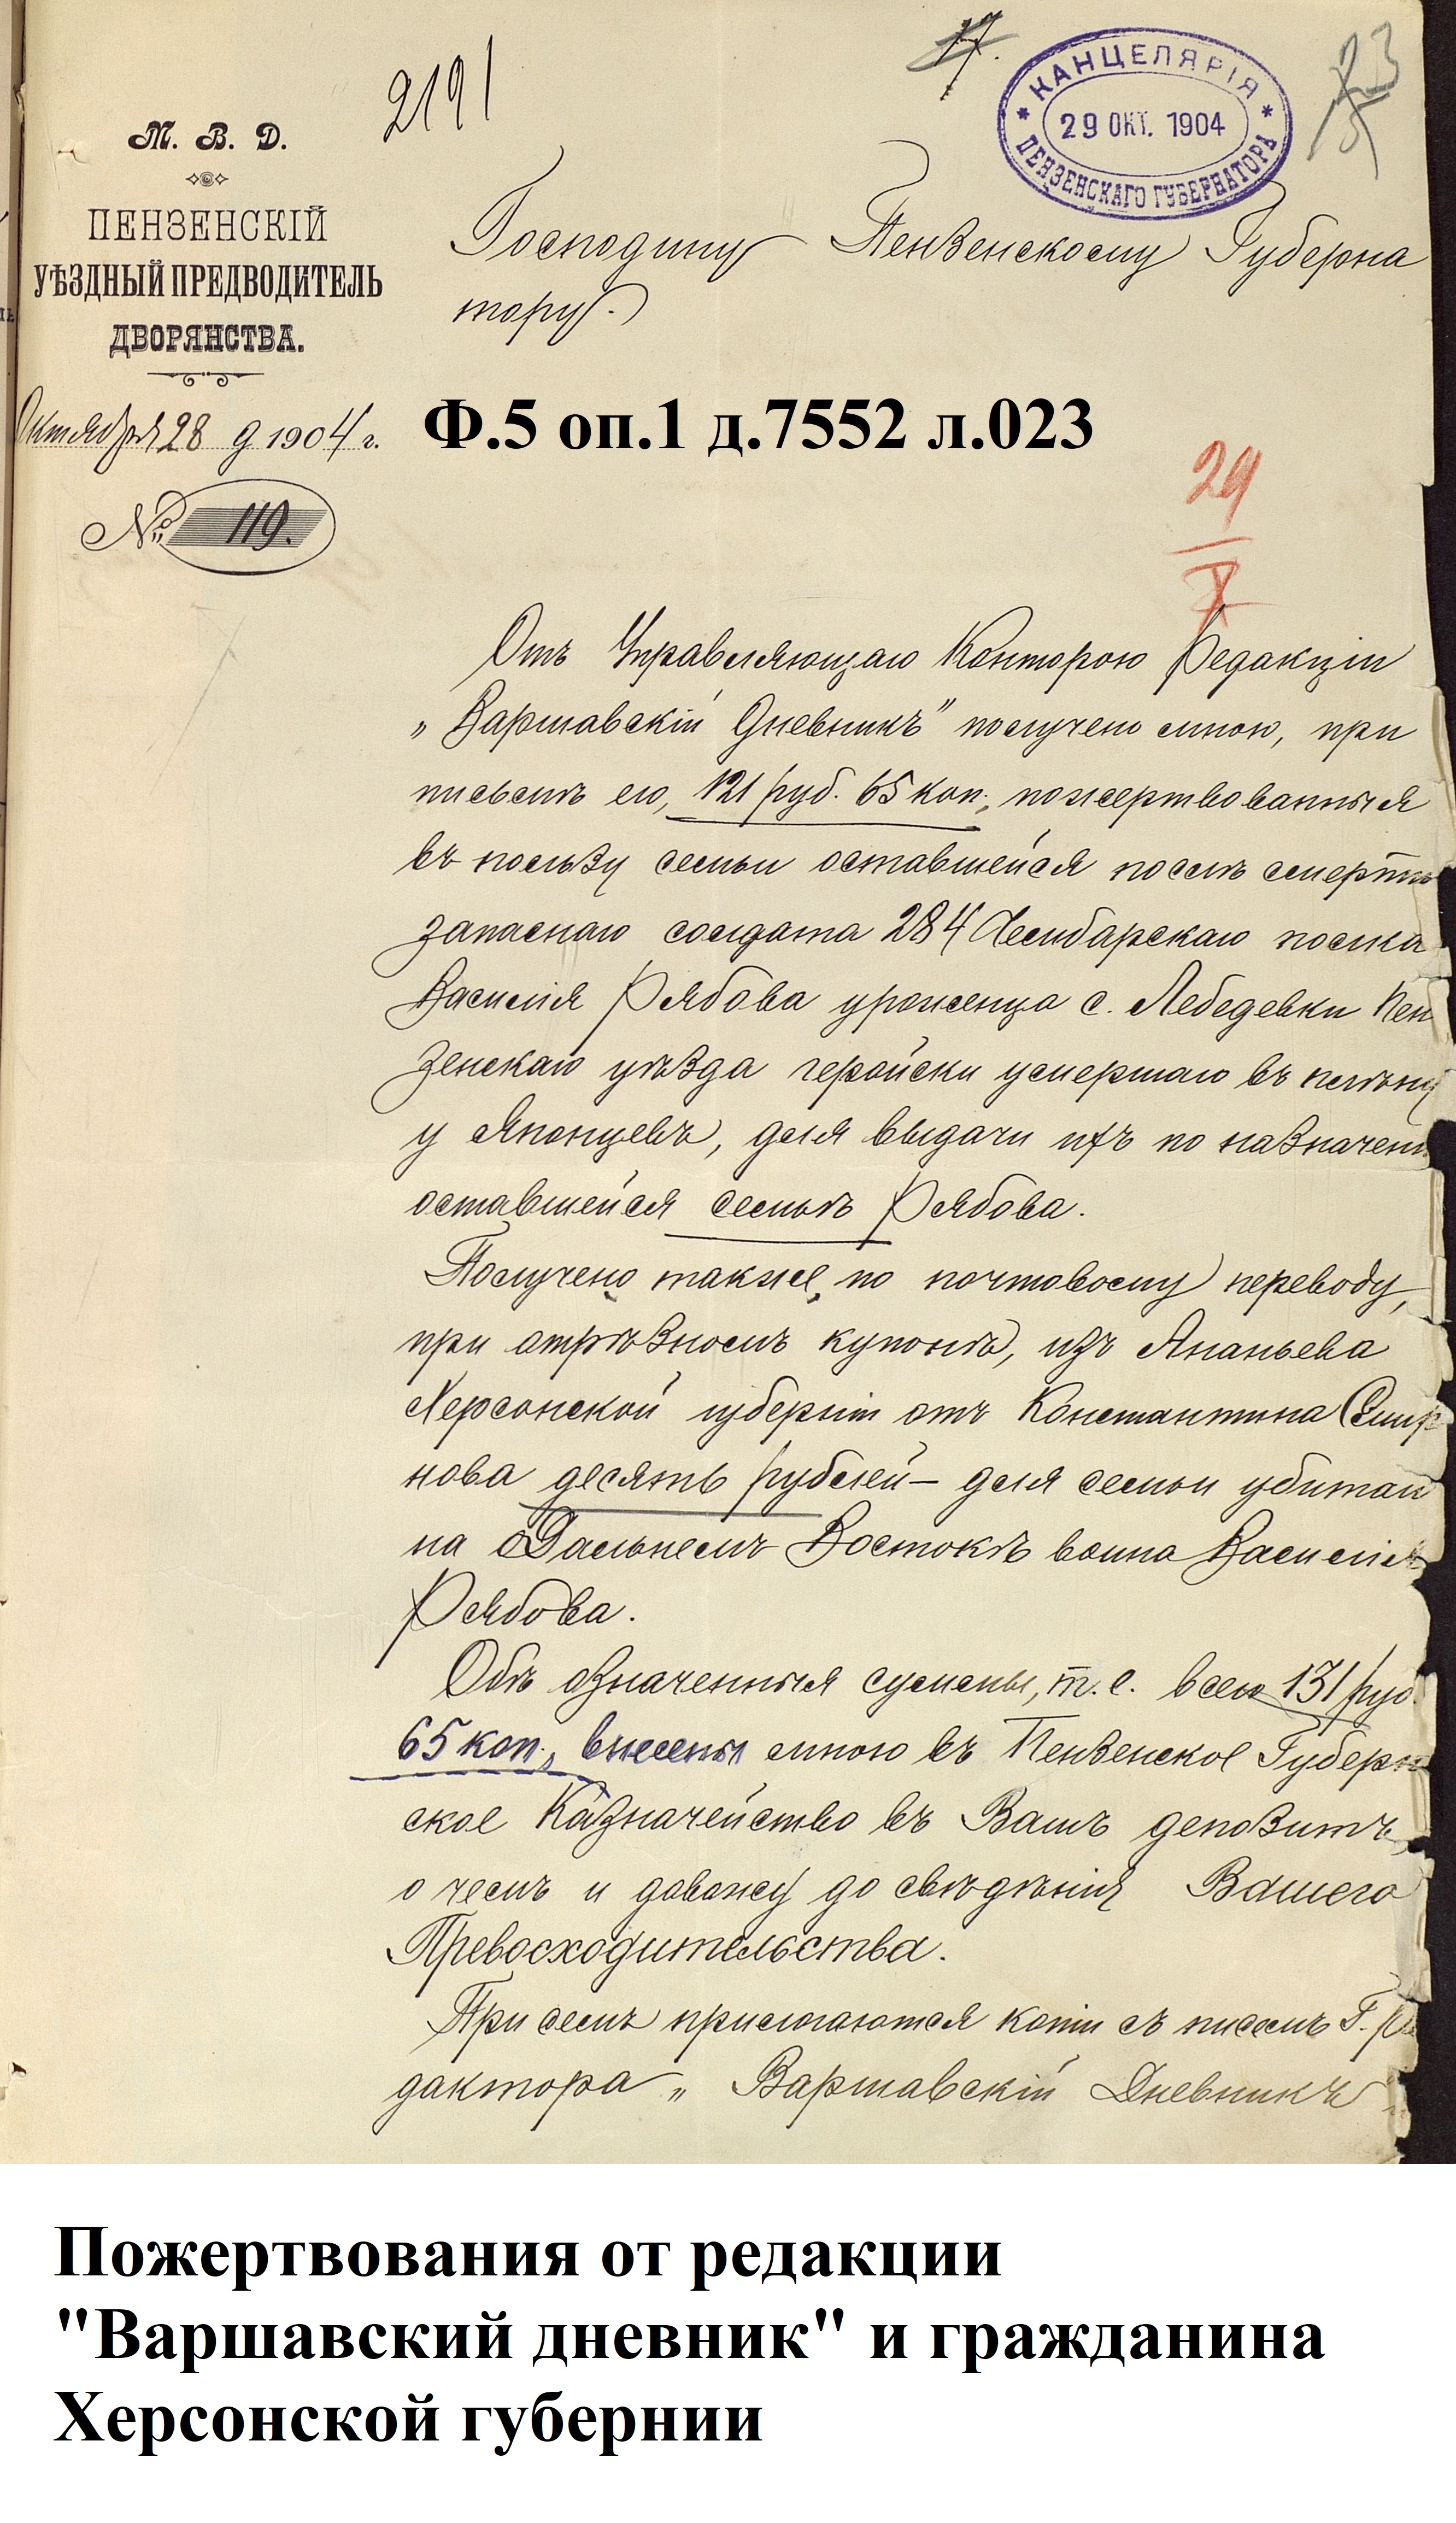 2191
17.
КАНЦЕЛЯРІЯ
29 ОКТ. 1904
ПЕНЗЕНСКАГО ГУБЕРНАТОРА
23
М. В. Д.
ПЕНЗЕНСКІЙ
УѢЗДНЫЙ ПРЕДВОДИТЕЛЬ
ДВОРЯНСТВА.
Октября 28 д 1904 г.
№ 119.
Господину Пензенскому Губерна
тору.
Ф.5 оп.1 д.7552 л.023
29
X
Отъ Управляющаго Конторою Редакціи
„Варшавскій Дневникъ" получено мною, при
письмѣ его, 121 руб. 65 коп., пожертвованныя
въ пользу семьи оставшейся послѣ смерти
запаснаго солдата 284 Чембарскаго полка
Василія Рябова уроженца с. Лебедевки Пен
зенскаго уѣзда геройски умершаго въ плѣну
у Японцевъ, для выдачи ихъ по назначенію
оставшейся семьѣ Рябова.
Получено также, по почтовому переводу,
при отрѣзномъ купонѣ, изъ Ананьева
Херсонской губерніи отъ Константина Смир
нова десять рублей — для семьи убитаго
на Дальнемъ Востокѣ воина Василія
Рябова.
Обѣ означенныя суммы, т. е. всего 131 руб.
65 коп., внесены мною въ Пензенское Губерн
ское Казначейство въ Вашъ депозитъ,
о чемъ и довожу до свѣдѣнія Вашего
Превосходительства.
При семъ прилагаются копіи съ писемъ Г. Ре
дактора „Варшавскій Дневникъ
Пожертвования от редакции
"Варшавский дневник" и гражданина
Херсонской губернии